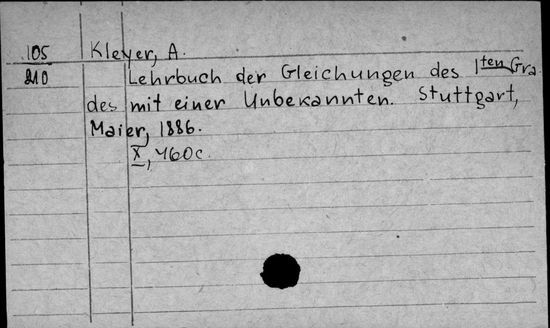 105 Kleyer, A.
210 Lehrbuch der Gleichungen des 1ten Gra
des mit einer Unbekannten. Stuttgart,
Maier, 1886.
X, 460c.